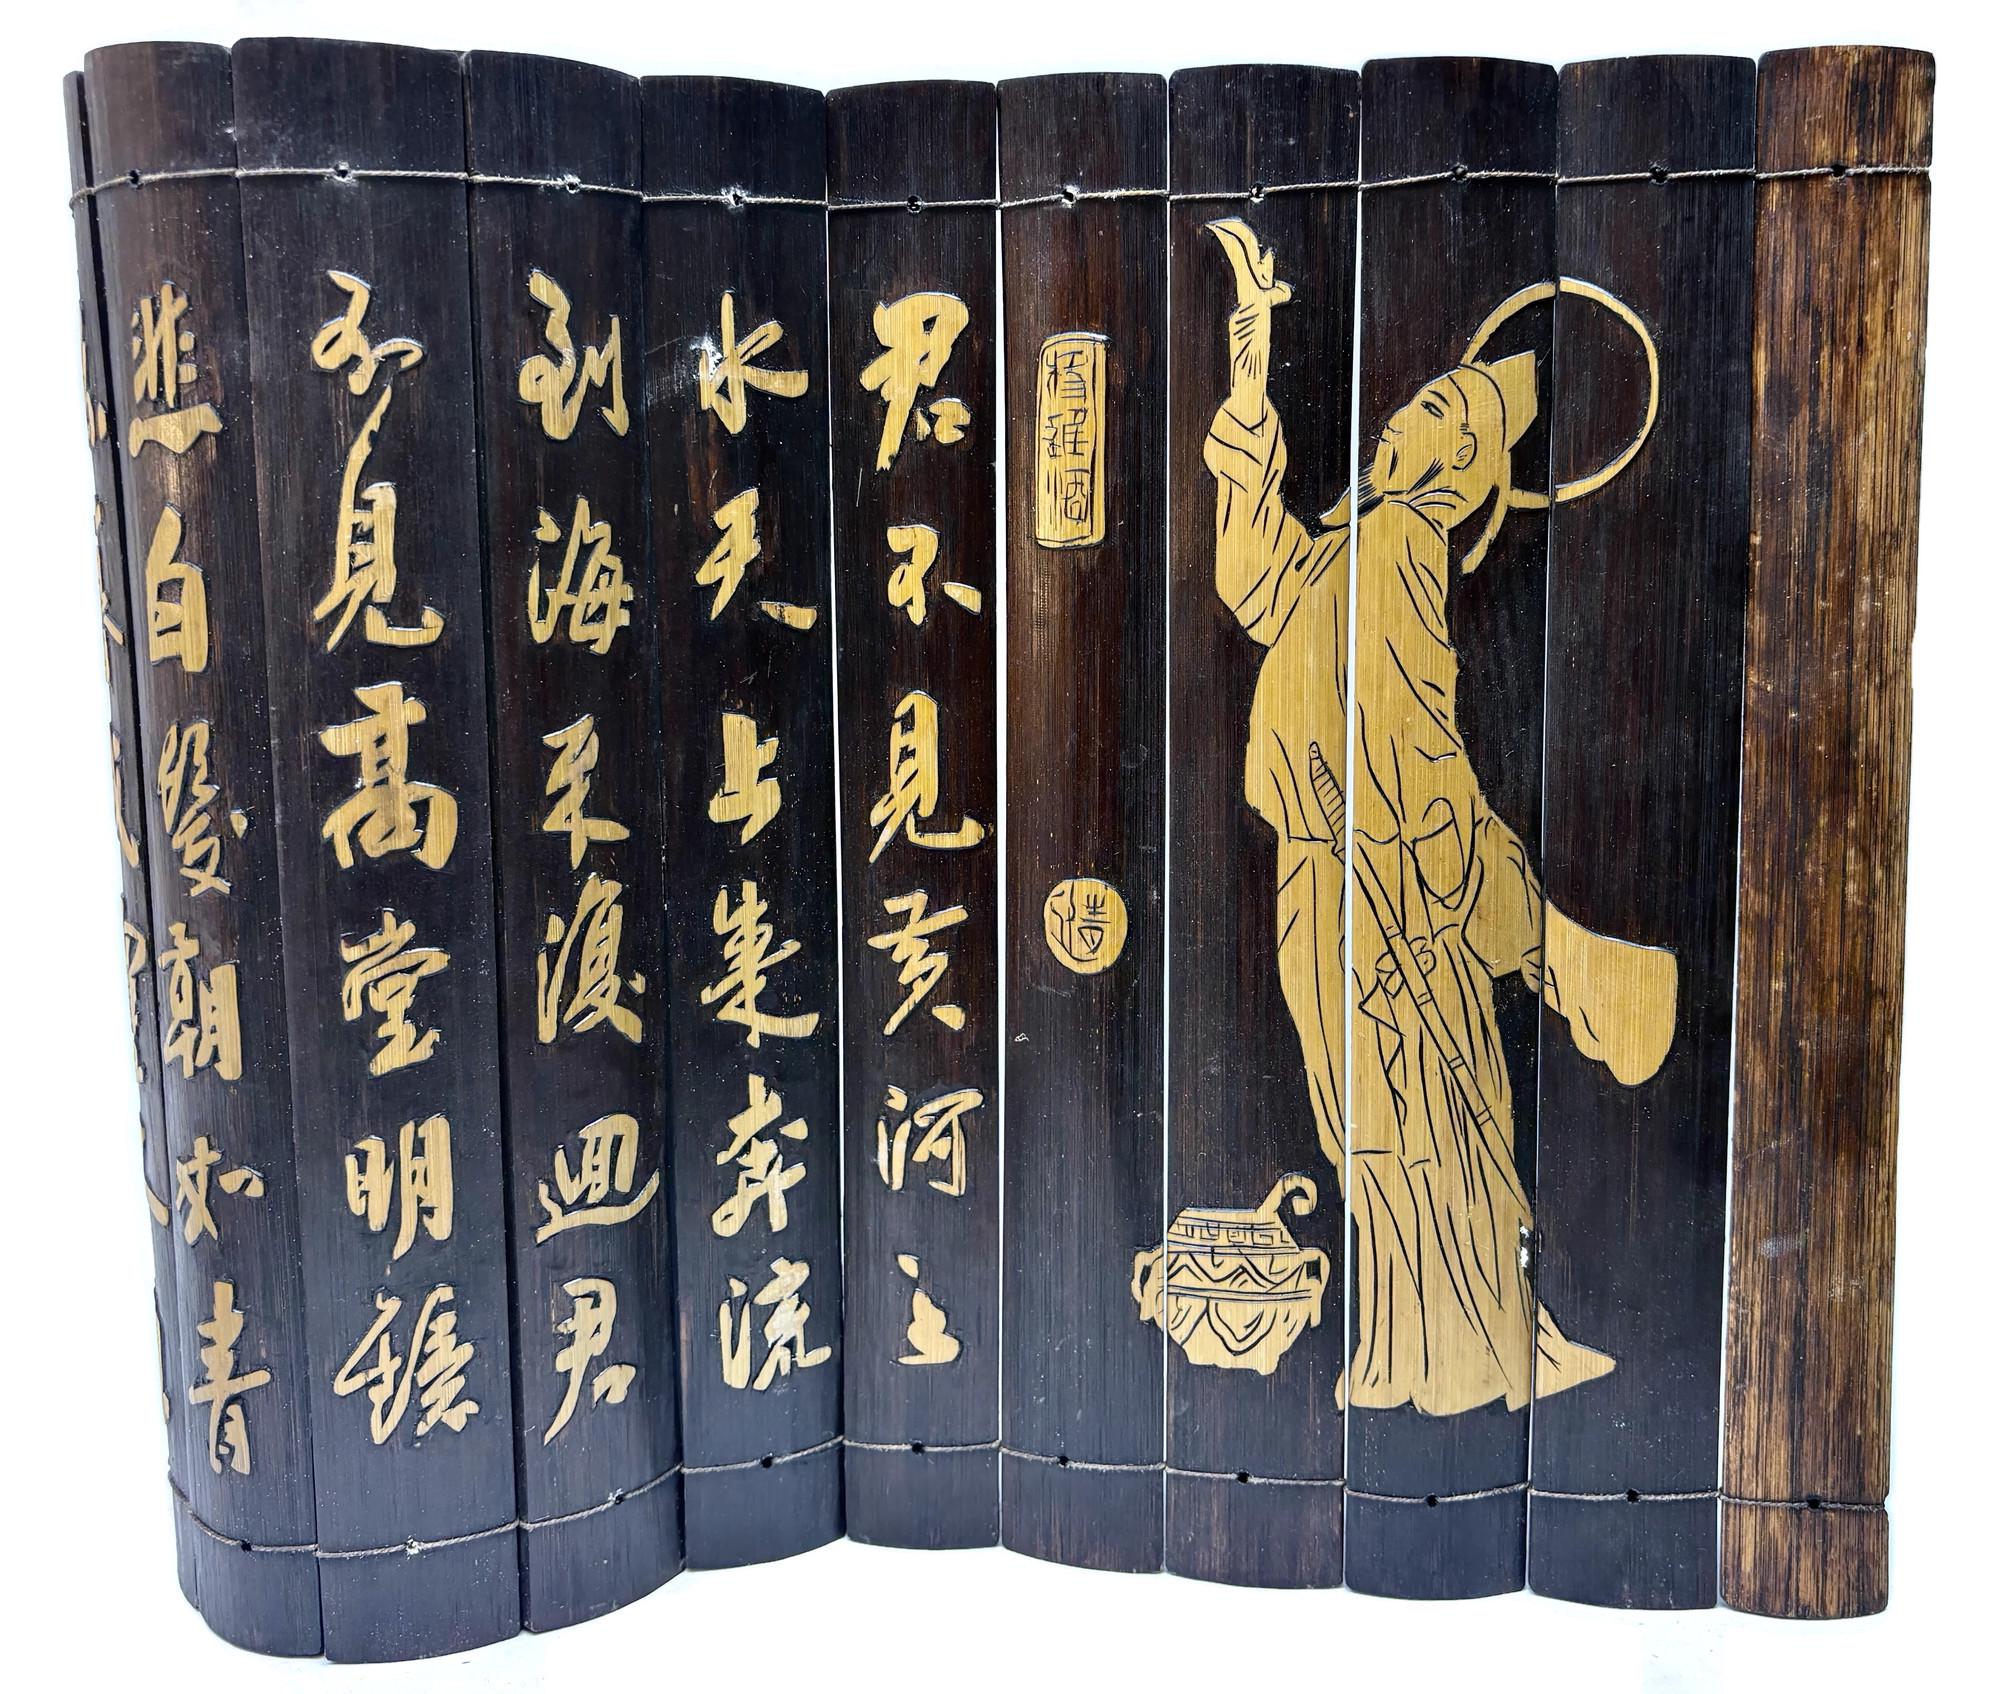 將進酒
君不見黃河之
水天上來奔流
到海不復迴君
不見高堂明鏡
悲白髮朝如青